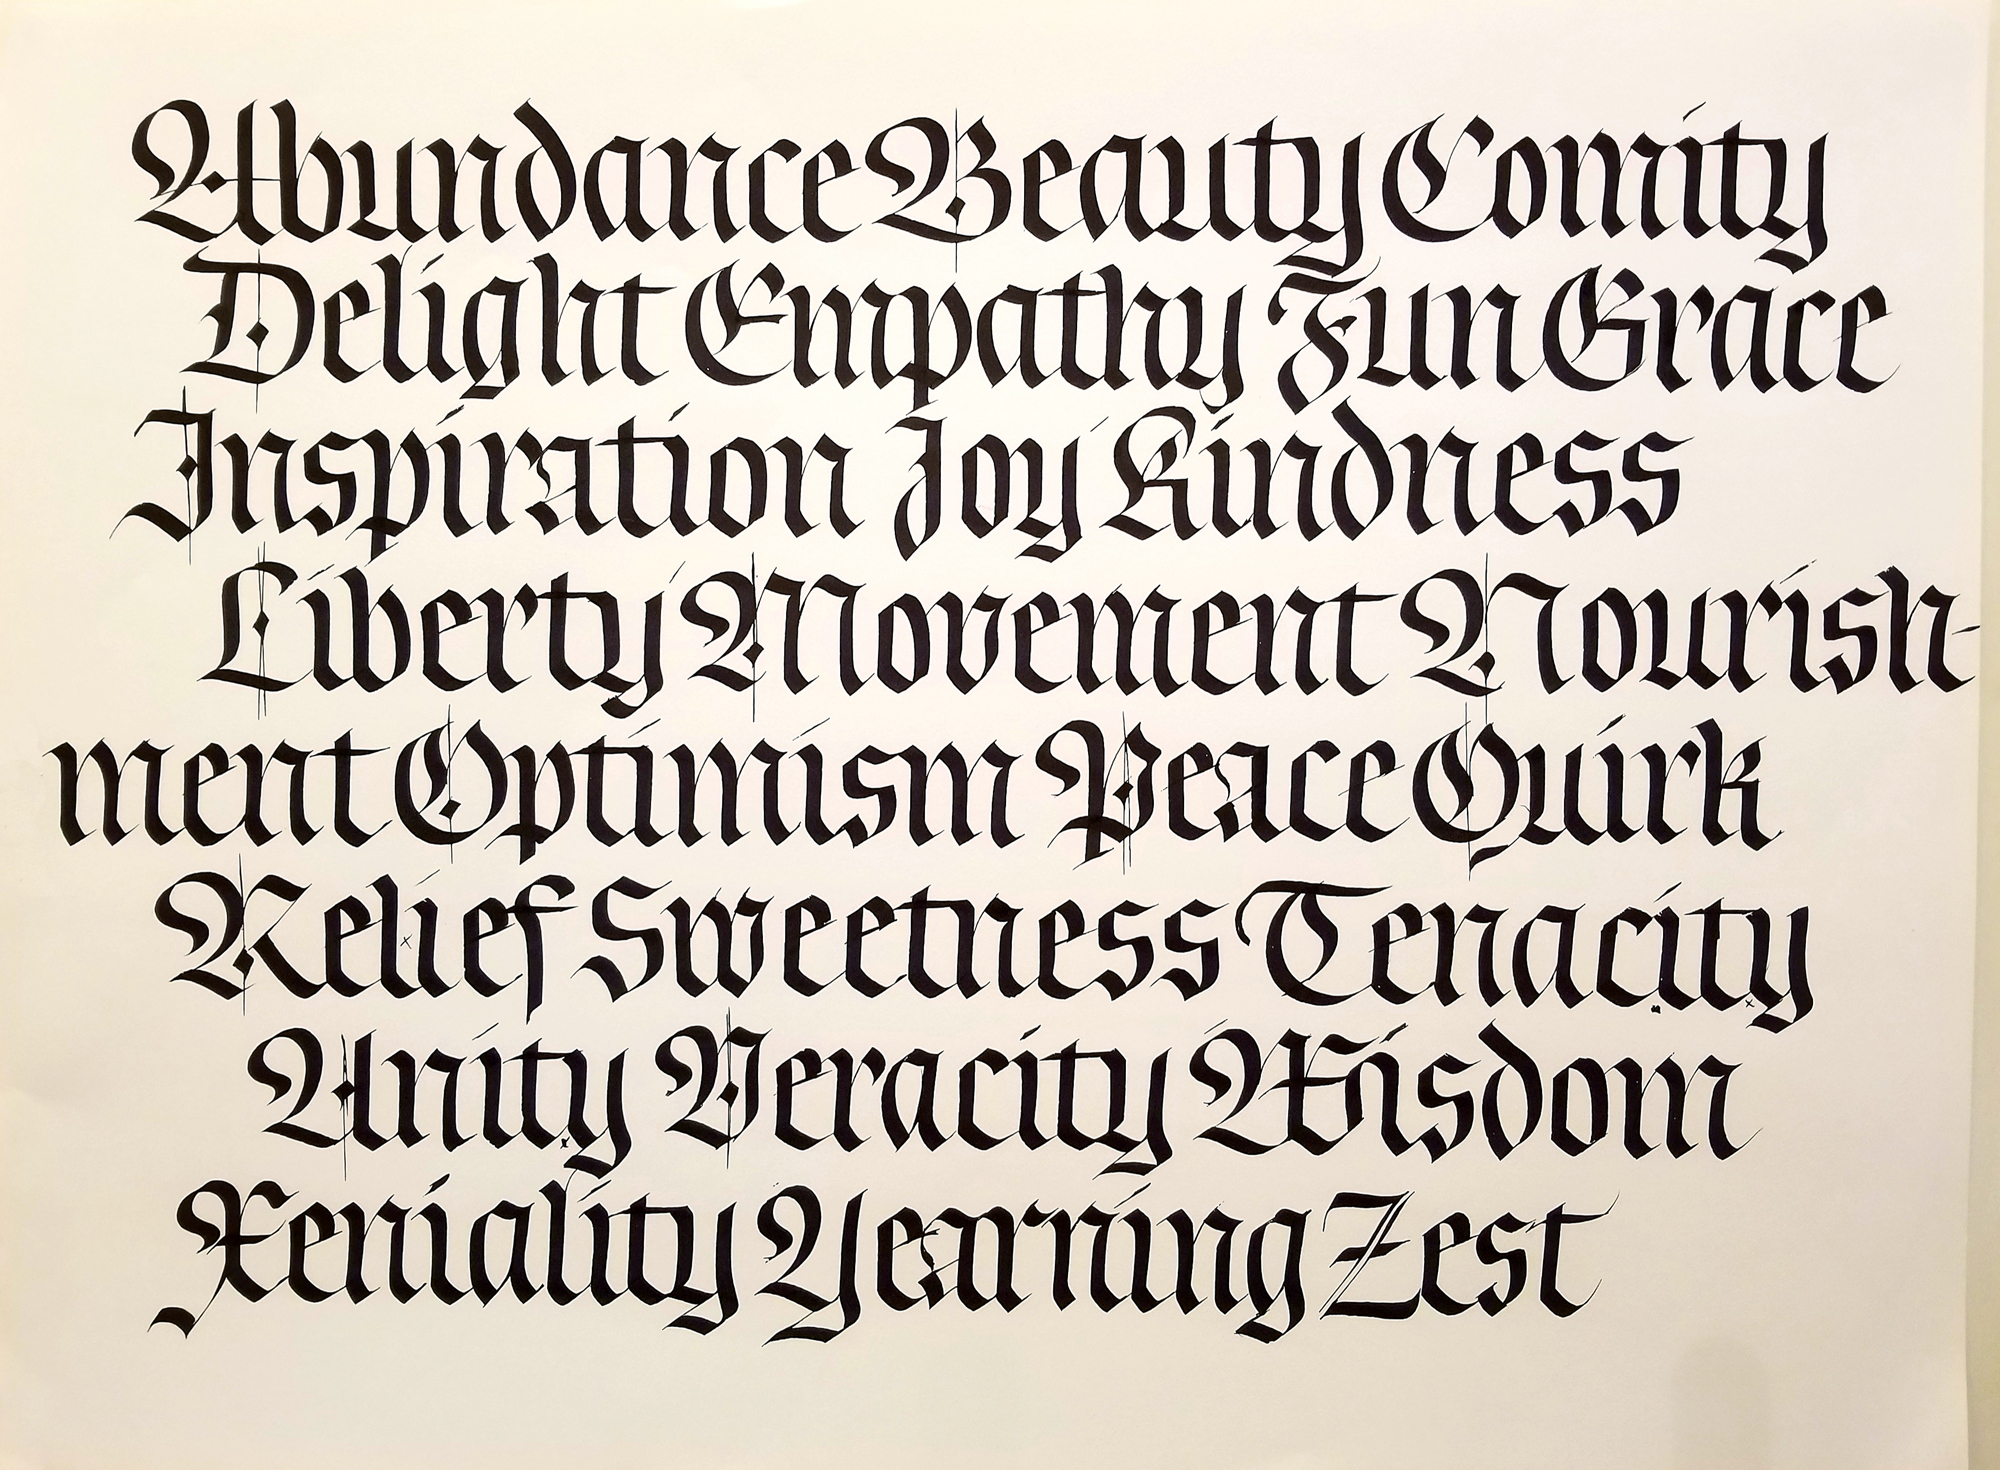 Abundance Beauty Comity
Delight Empathy Fun Grace
Inspiration Joy Kindness
Liberty Movement Nourish-
ment Optimism Peace Quirk
Relief Sweetness Tenacity
Unity Veracity Wisdom
Xeniality Yearning Zest